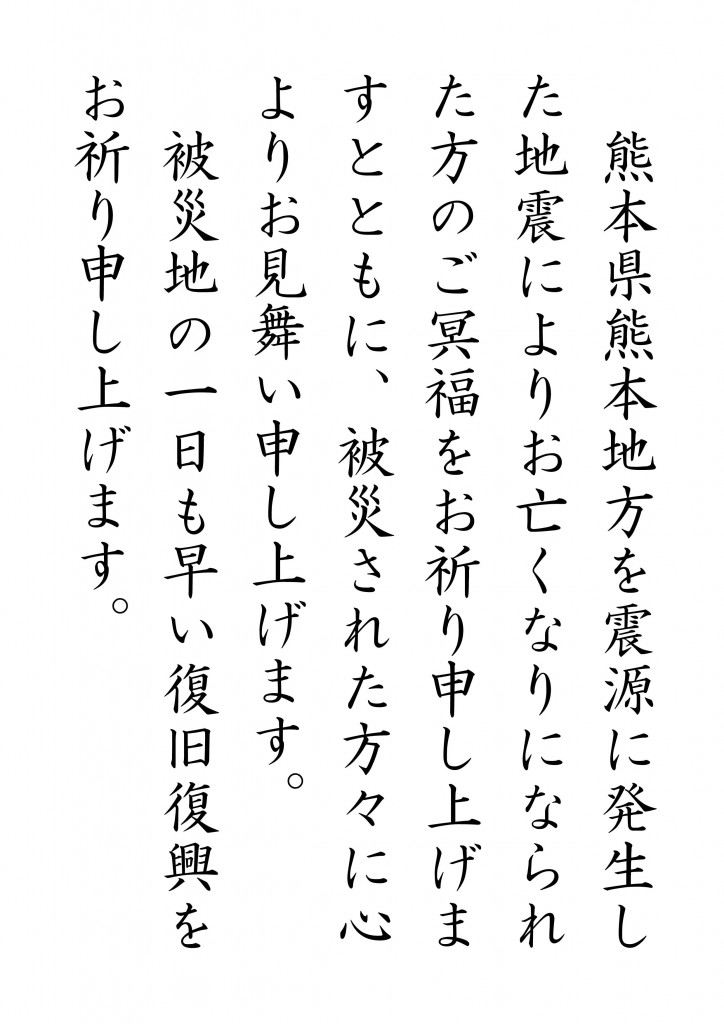 熊本県熊本地方を震源に発生し
た地震によりお亡くなりになられ
た方のご冥福をお祈り申し上げま
すとともに、被災された方々に心
よりお見舞い申し上げます。
被災地の一日も早い復旧復興を
お祈り申し上げます。